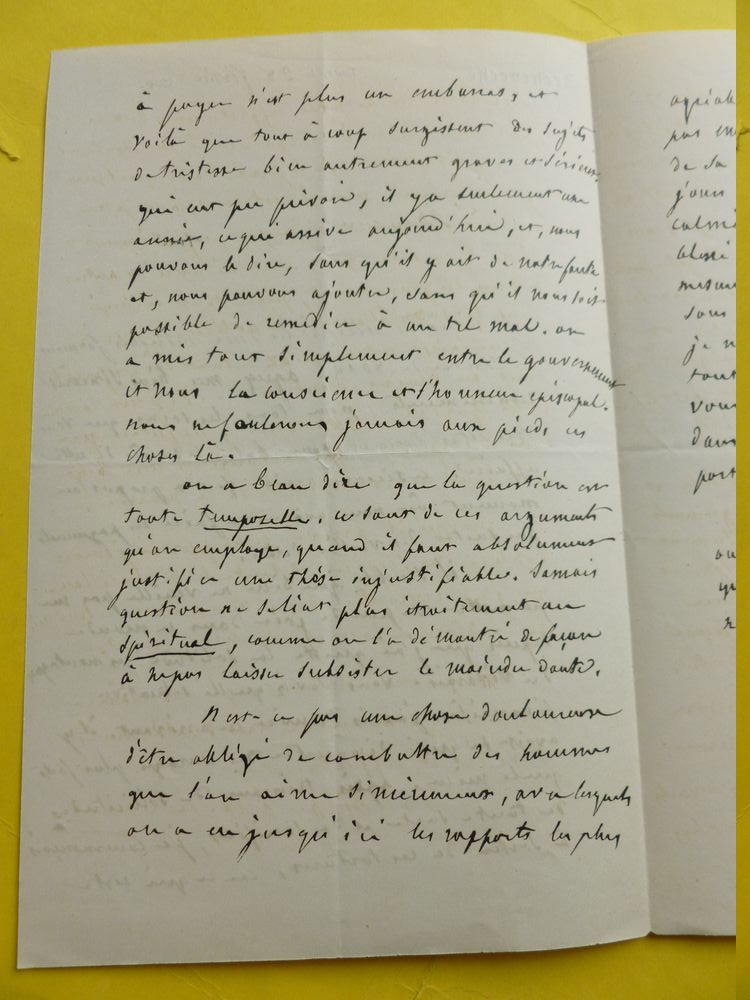 à payer n'est plus un embarras, et
voilà que tout à coup surgissent des sujets
de tristesse bien autrement graves et sérieux.
qui eut pu prévoir, il y a seulement une
année, ce qui arrive aujourd'hui, et, nous
pouvons le dire, sans qu'il y ait de notre faute
et, nous pouvons ajouter, sans qu'il nous soit
possible de remédier à un tel mal. on
a mis tout simplement entre le gouvernement
et nous la conscience et l'honneur épiscopal.
nous ne foulerons jamais aux pieds ces
choses là.
on a beau dire que la question est
toute temporelle, ce sont de ces arguments
qu'on employe, quand il faut absolument
justifier une thèse injustifiable. Jamais
question ne se liat plus étroitement au
spirituel, comme on l'a démontré de façon
à ne pas laisser subsister le moindre doute.
N'est-ce pas une chose douloureuse
d'être obligé de combattre des hommes
que l'on aime sincèrement, avec lesquels
on a eu jusqu'ici les rapports les plus
agréab
pas en
de sa
jours
calmi
blessé
mesure
sous
je n
tout
vous
dans
port
ou
qu
n